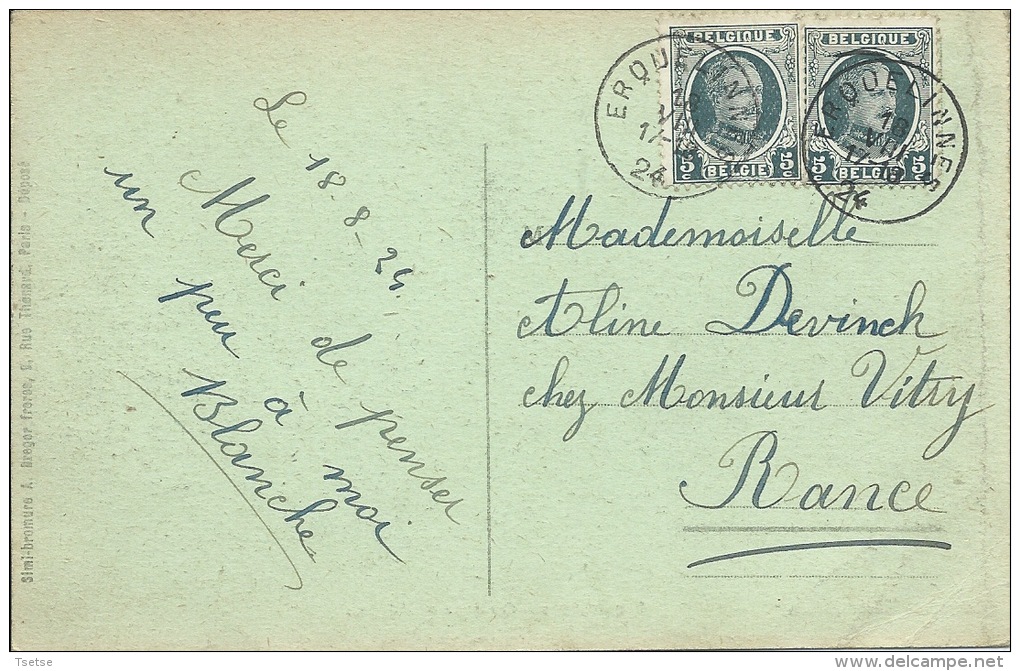 BELGIQUE BELGIQUE
5c 5c 5c 5c
(BELGIE) (BELGIE)
ERQUELINNES
18
VIII
24
ERQUELINNES
18
VIII
17-18
24
Le 18-8-24.
Merci de penser
un peu à moi
Blanche
Mademoiselle
Aline Devinck
chez Monsieur Vitry
Rance
Simi-bromure A. Breger frères, 9, Rue Thénard, Paris - Déposé
Tsetse
delcampe.net